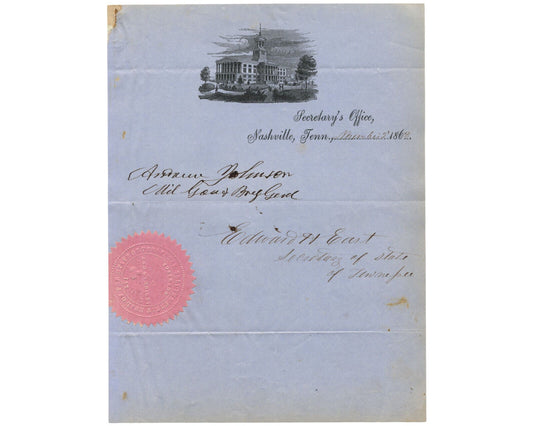 Secretary's Office,
Nashville, Tenn., 1862.
Andrew Johnson
Mil Gov & Brig Genl
Edward H East
Secretary of State
of Tennessee